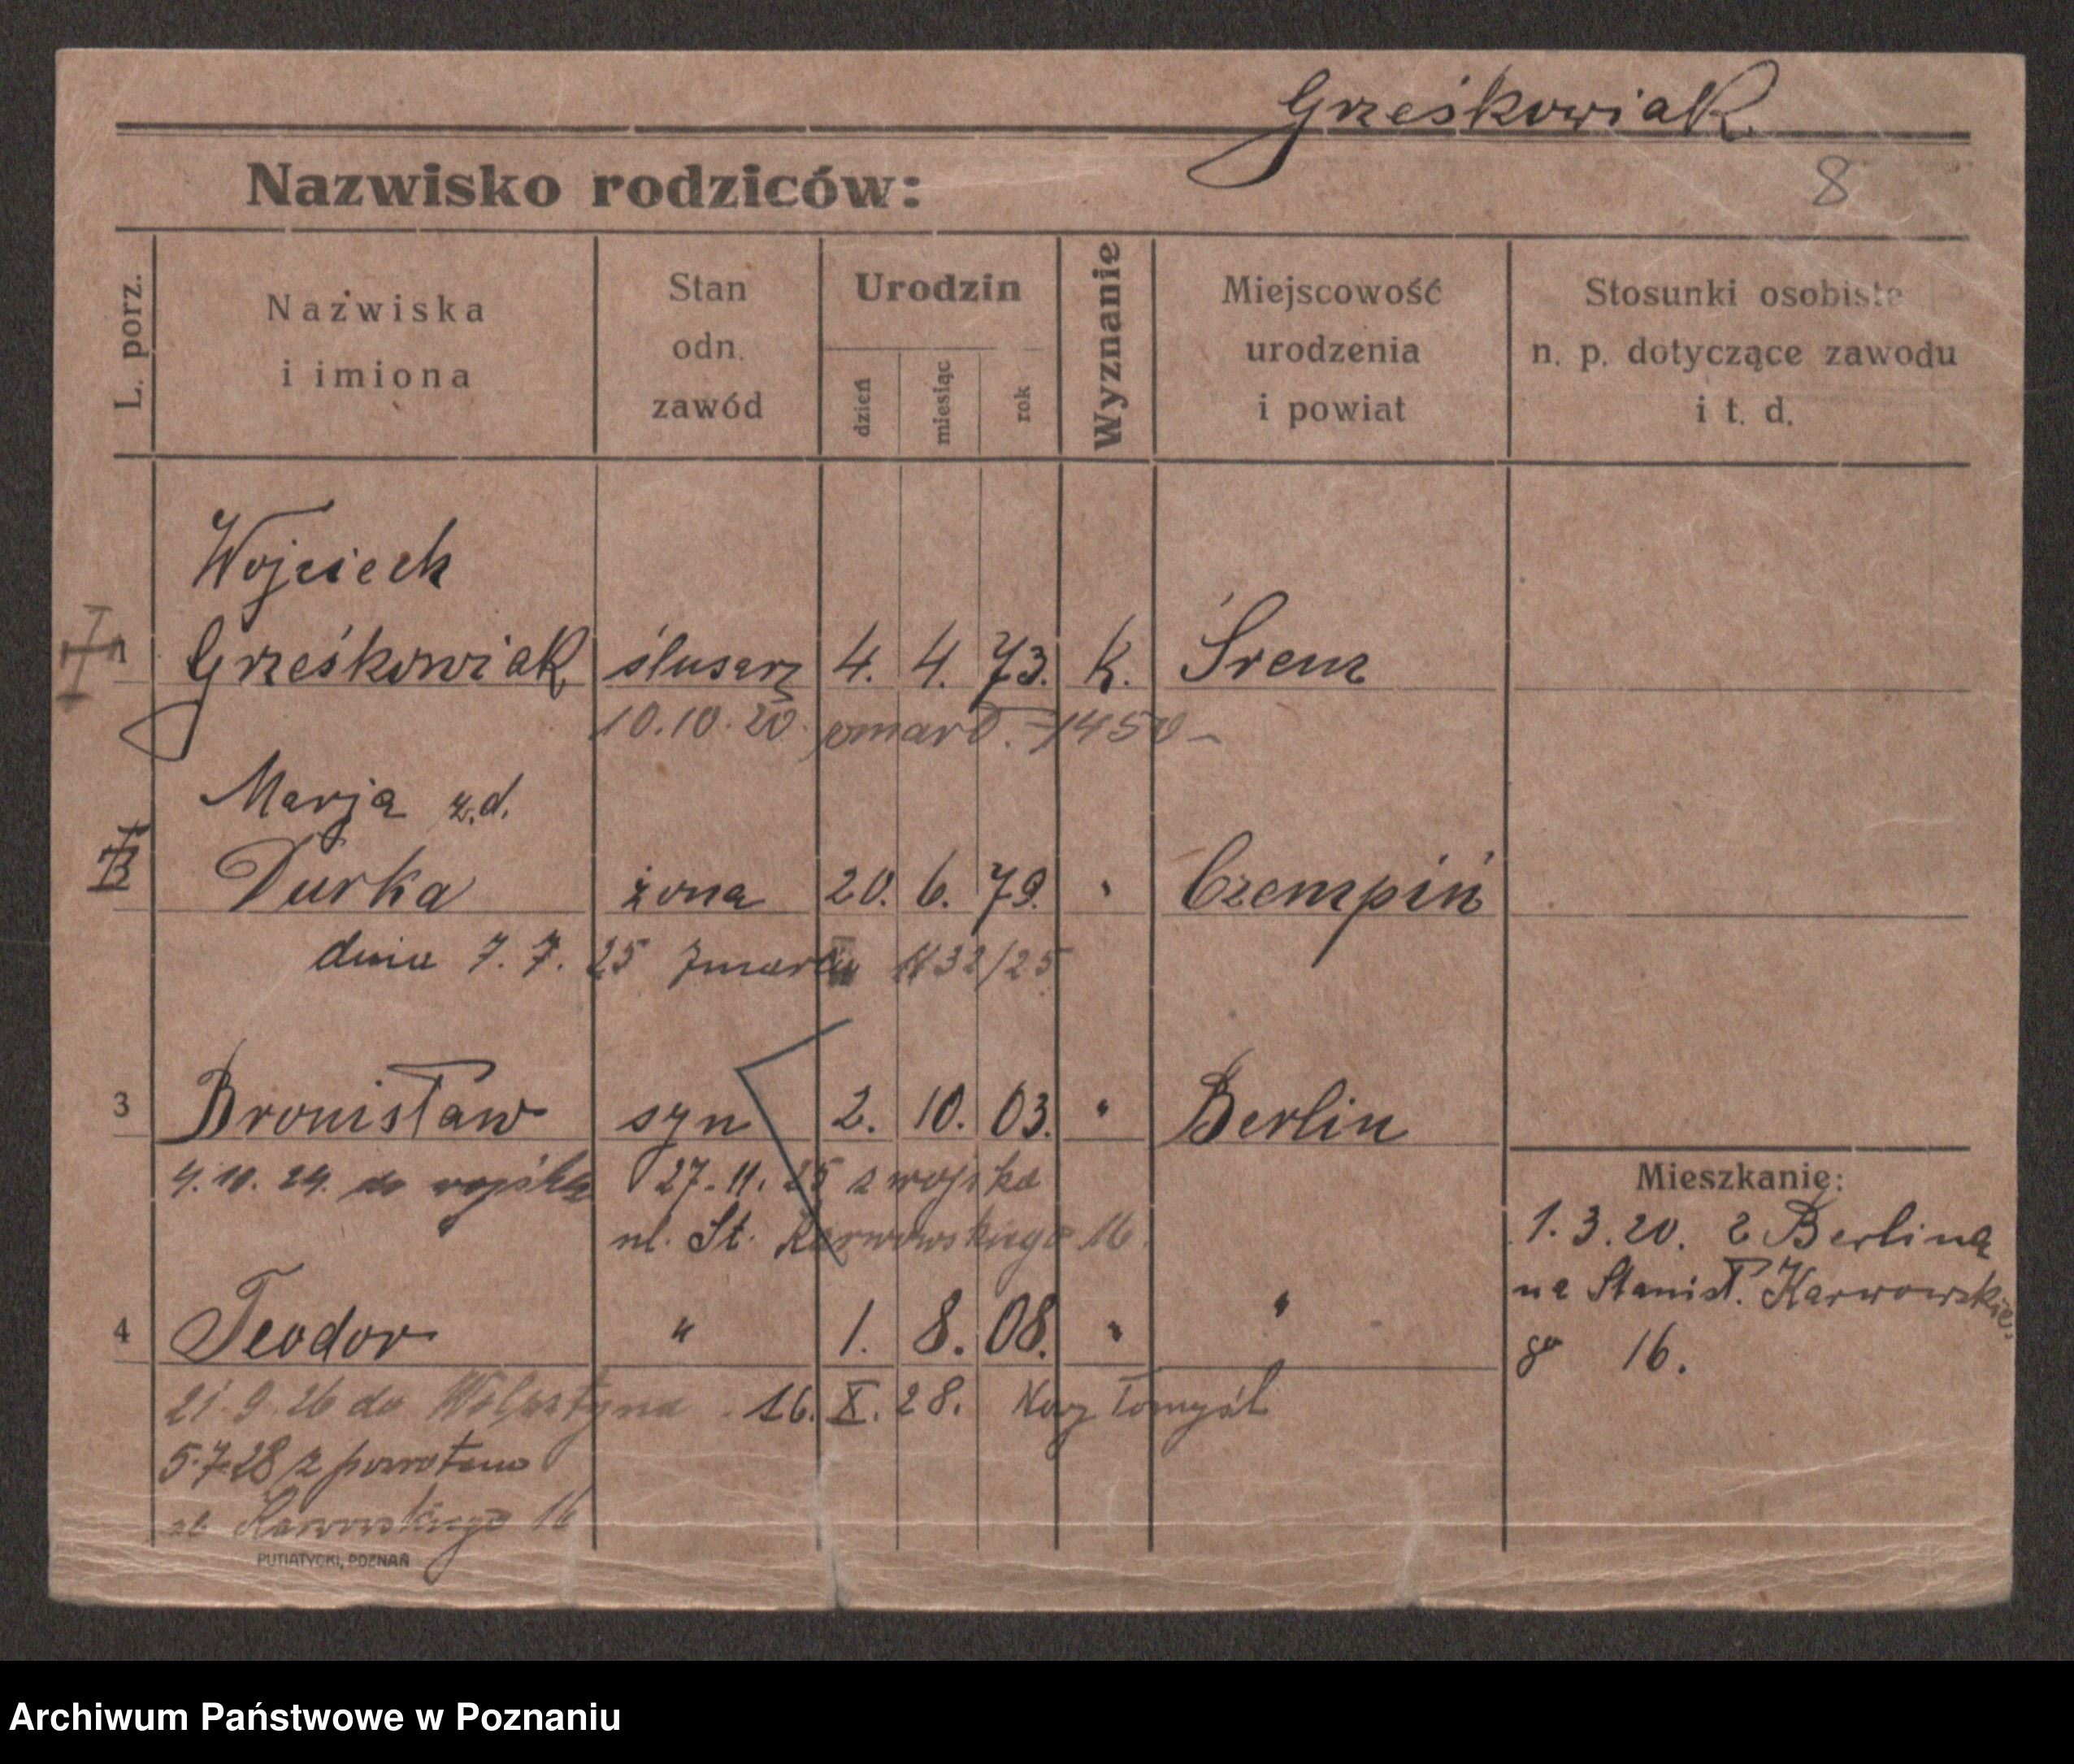 Grześkowiak
8
Nazwisko rodziców:
L. porz.
Nazwiska
i imiona
Stan
odn.
zawód
Urodzin
dzień
miesiąc
rok
Wyznanie
Miejscowość
urodzenia
i powiat
Stosunki osobiste
n. p. dotyczące zawodu
i t. d.
Wojciech
1 Grześkowiak ślusarz 4. 4. 73. k. Śrem
10.10.20. zmarł. 1450
Marja z.d.
2 Durka żona 20. 6. 79. " Czempiń
dnia 7. 7. 25 zmarła 1132/25
3 Bronisław syn 2. 10. 03. " Berlin
4.10.24. do wojska 27.11.25 z wojska
ul. St. Karwowskiego 16
4 Teodor " 1. 8. 08. " "
21.9.26 do Wolsztyna 16. X. 28. Nowy Tomyśl
5.7.28 z powrotem
Karwowskiego 16
Mieszkanie:
1.3.20. z Berlina
na Stanisł. Karwowskie
go 16.
PUTIATYCKI, POZNAŃ
Archiwum Państwowe w Poznaniu